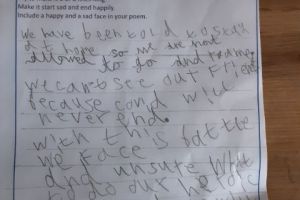 Make it start sad and end happily.
Include a happy and a sad face in your poem.
we have been told to stay
at home so we are not
allowed to go and
we cant see our
because covid will
never end.
with this battle
we face
and unsure what
to do our heroic